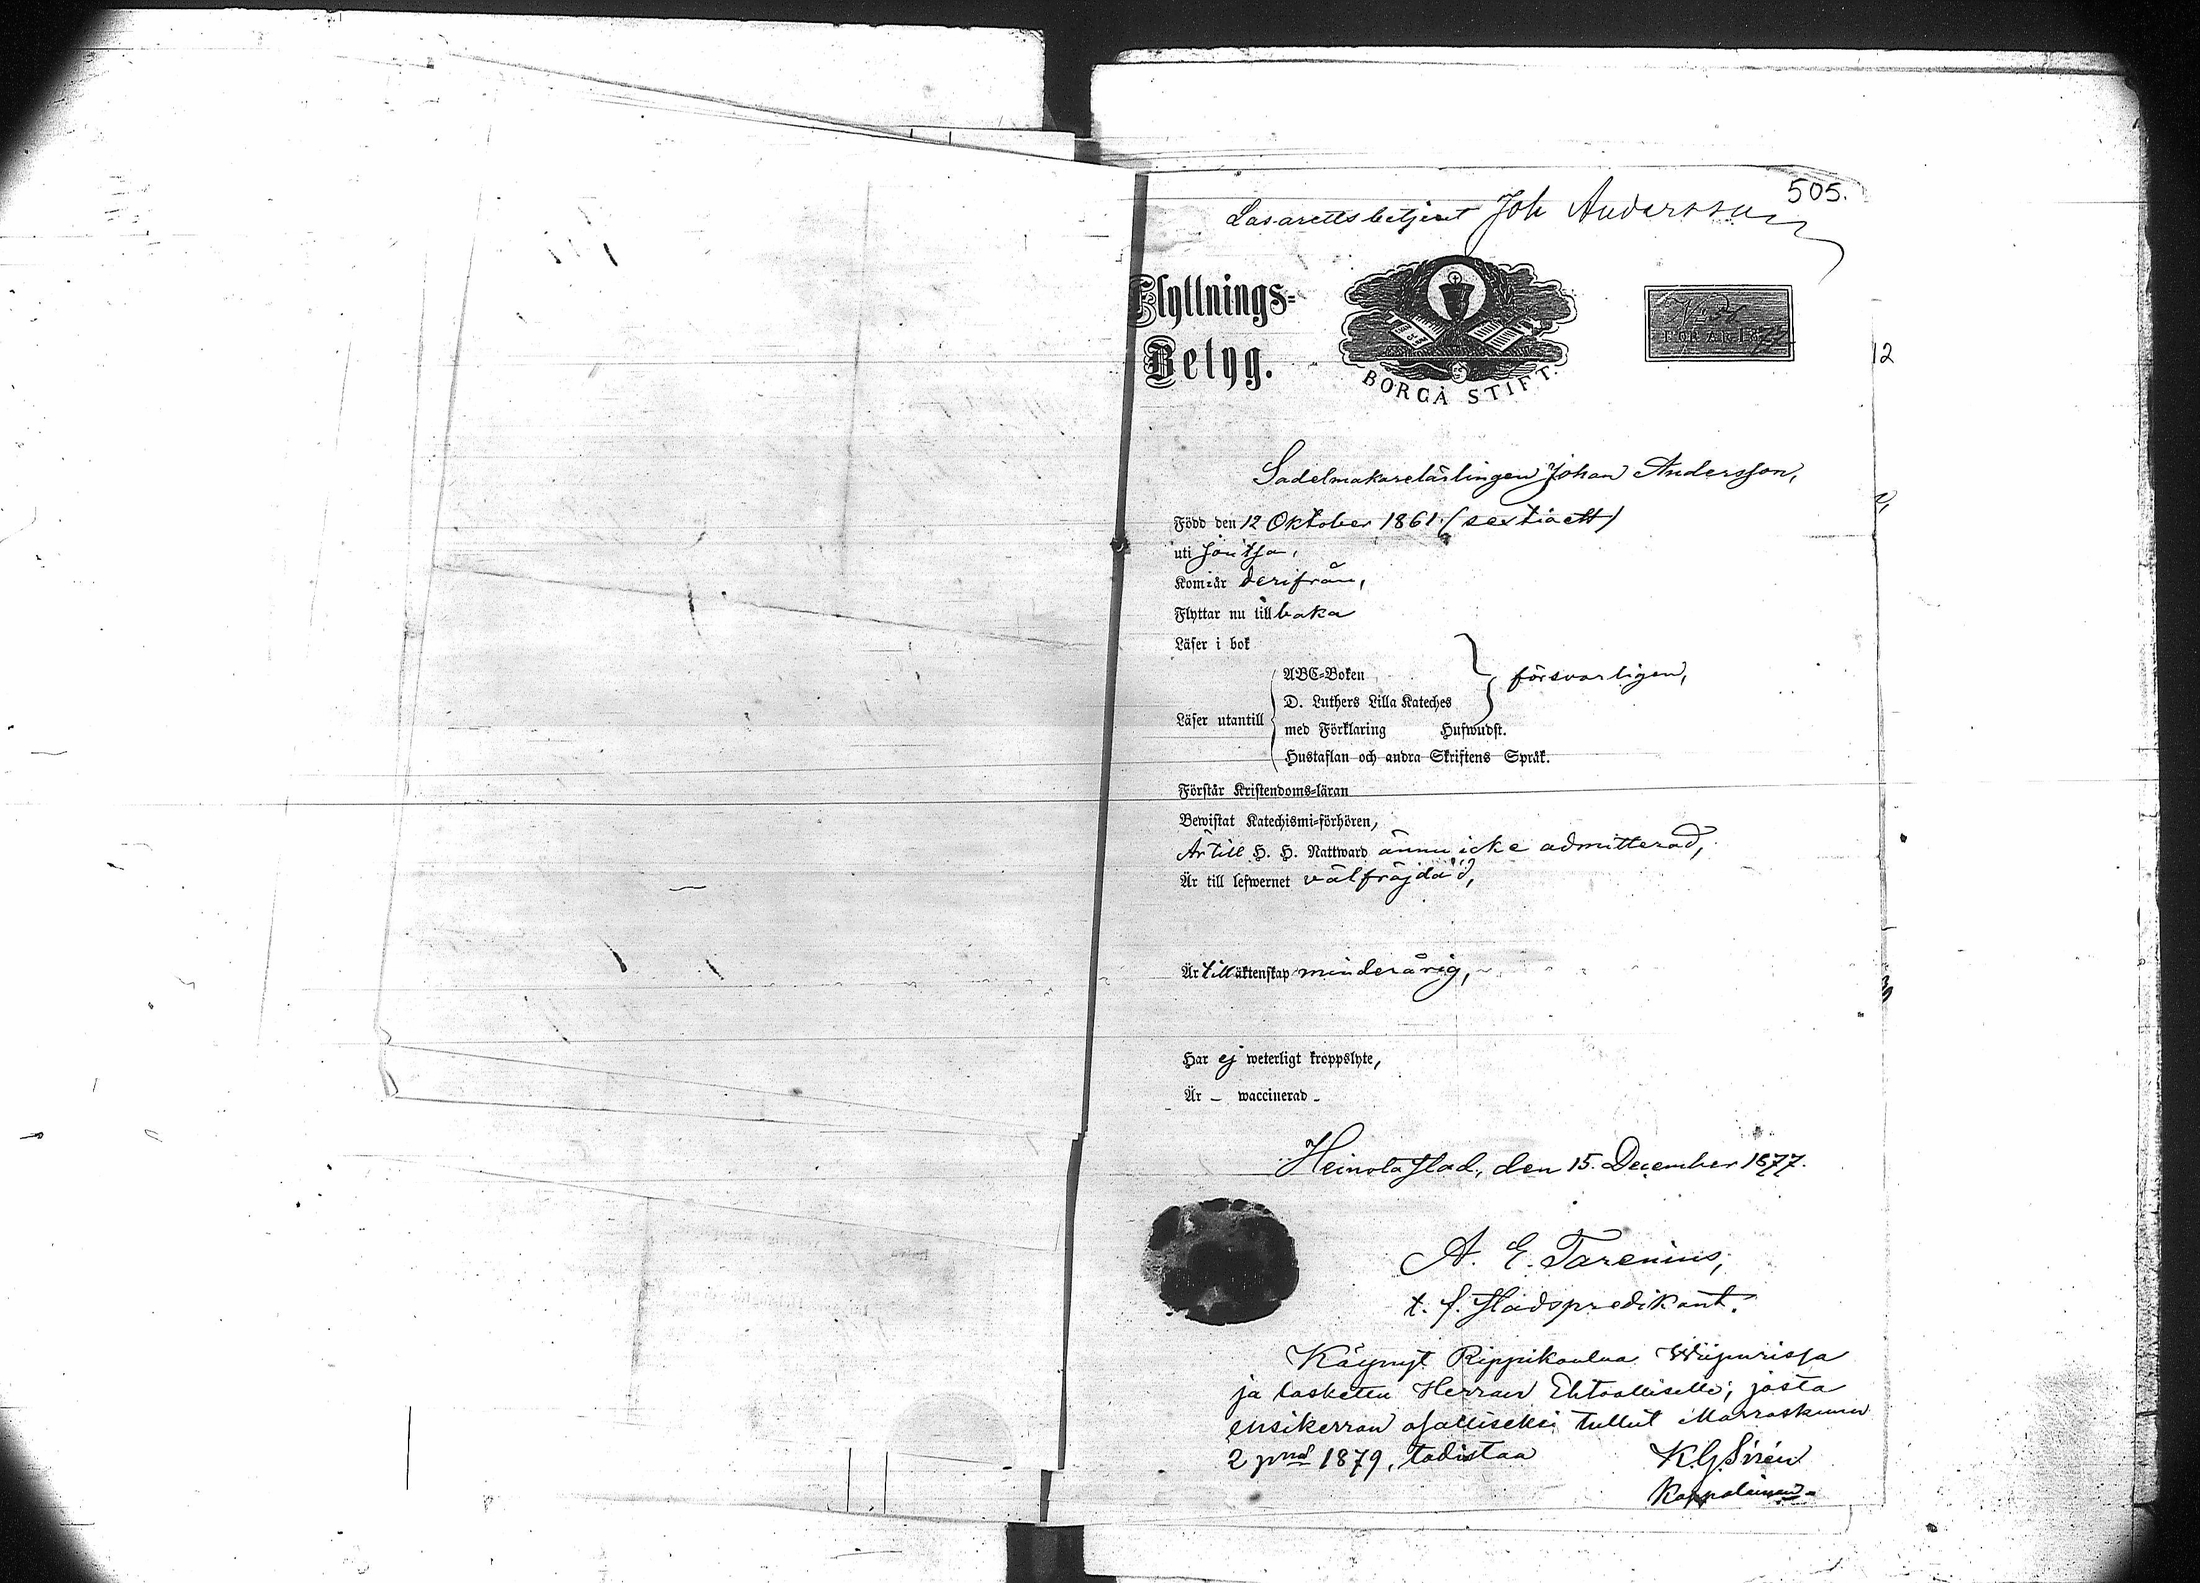 505.
Lasarettsbetjent Joh Andersson
Flyttnings=
Betyg.
BORGÅ STIFT.
FÖR ÅR 1877
12
Sadelmakarelärlingen Johan Andersson,
Född den 12 Oktober 1861 (sextioett)
uti
Kom är derifrån,
Flyttar nu tillbaka
Läser i bok
ABC=Boken
försvarligen,
D. Luthers Lilla Kateches
Läser utantill
med Förklaring Hufwudst.
Hustaflan och andra Skriftens Språk.
Förstår Kristendoms=läran
Bewistat Katechismi=förhören,
Är till H. H. Nattward ännu icke admitterad,
Är till lefwernet välfräjdad,
Är till äktenskap minderårig,
Har ej weterligt kroppslyte,
Är – waccinerad –
Heinola stad, den 15. December 1877.
A. E. Tarenius,
t. f. stadspredikant.
Käynyt Rippikoulua Wiipurissa
ja laskettu Herran Ehtoolliselle; josta
ensikerran osalliseksi tullut Marraskuun
2 pnä 1879, todistaa K.G. Sirén
Kappalainen